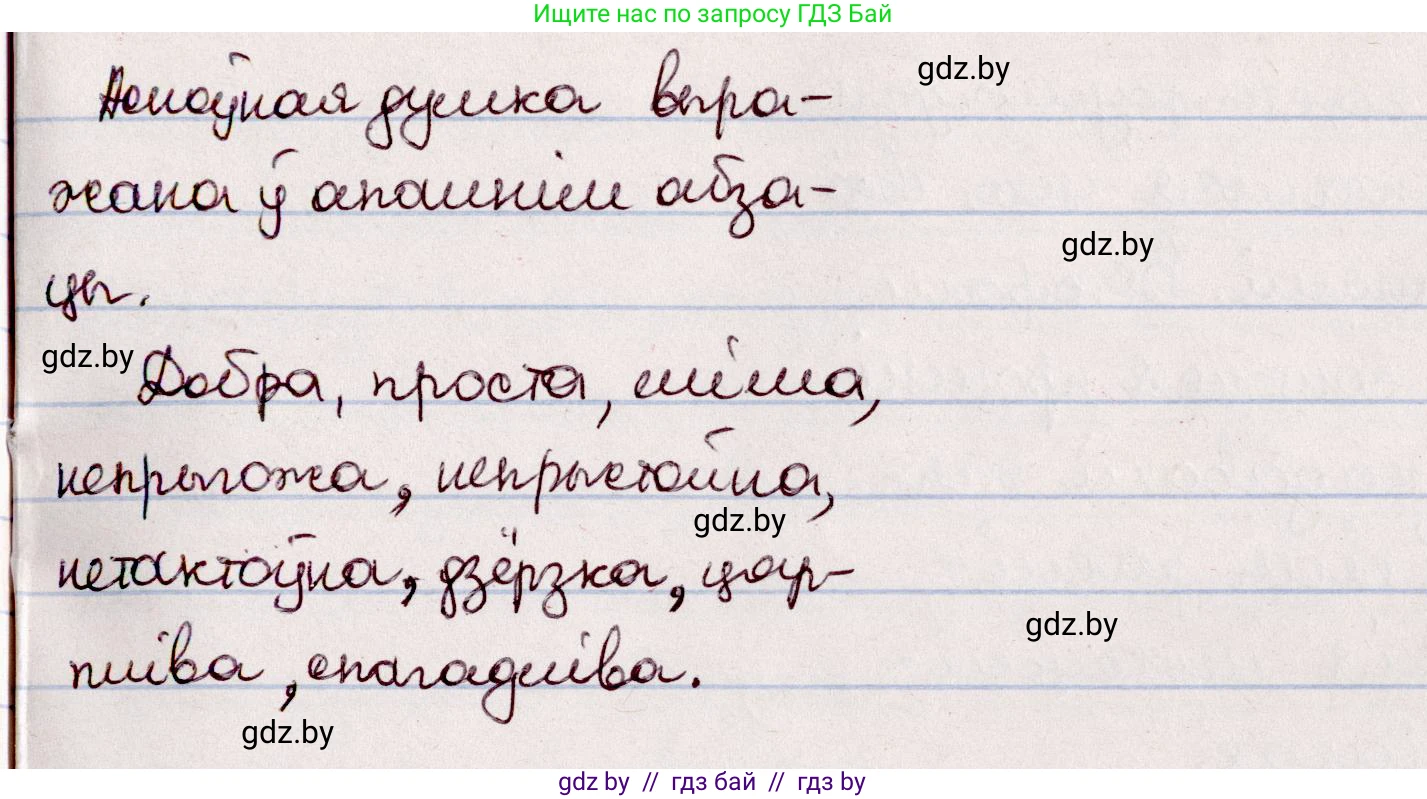 Ищите нас по запросу ГДЗ Бай
Асноўная думка выра-
gdz.by
жана ў апошнім абза-
gdz.by
цы.
gdz.by
Добра, проста, міла,
непрыгожа, непрыстойна,
gdz.by
нетактоўна, дзёрзка, цяр-
gdz.by
пліва, спагадліва.
gdz.by
gdz by // гдз бай // гдз by